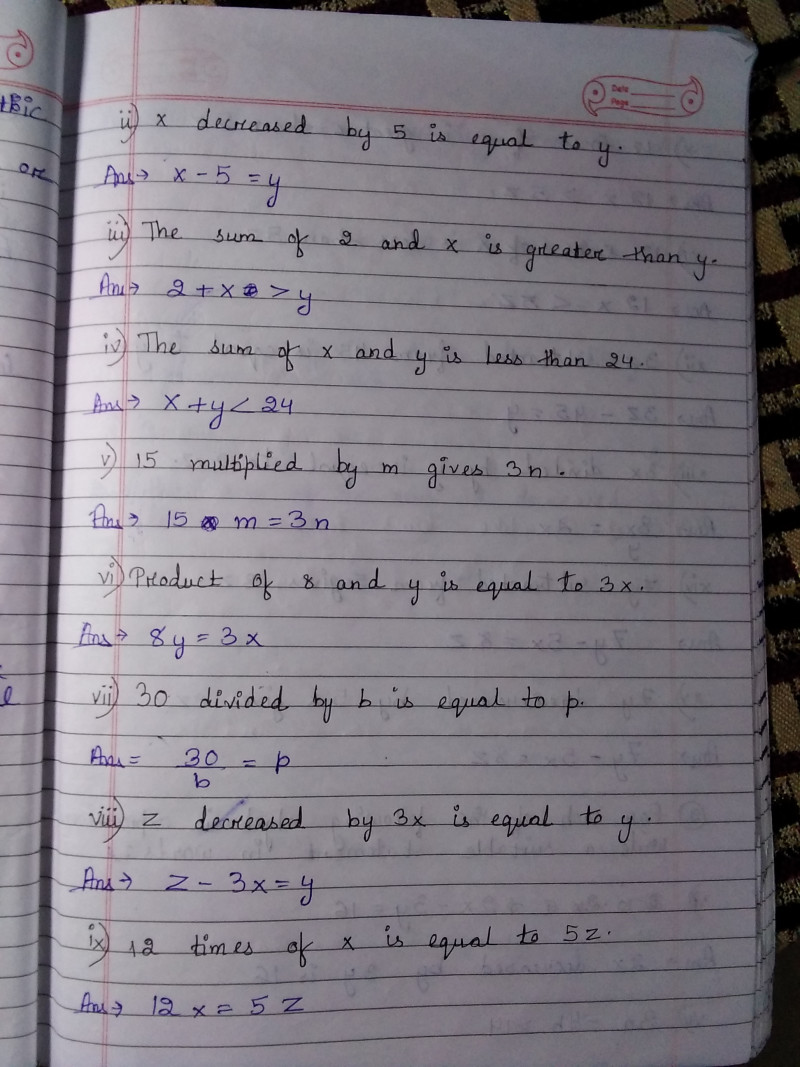 Date
Page
tBic
or
ii) x decreased by 5 is equal to y.
Ans→ x - 5 = y
iii) The sum of 2 and x is greater than y.
Ans→ 2 + x > y
iv) The sum of x and y is less than 24.
Ans→ x + y < 24
v) 15 multiplied by m gives 3n.
Ans→ 15 m = 3n
vi) Product of 8 and y is equal to 3x.
Ans→ 8y = 3x
vii) 30 divided by b is equal to p.
Ans= 30/b = p
viii) z decreased by 3x is equal to y.
Ans→ z - 3x = y
ix) 12 times of x is equal to 5z.
Ans→ 12x = 5z